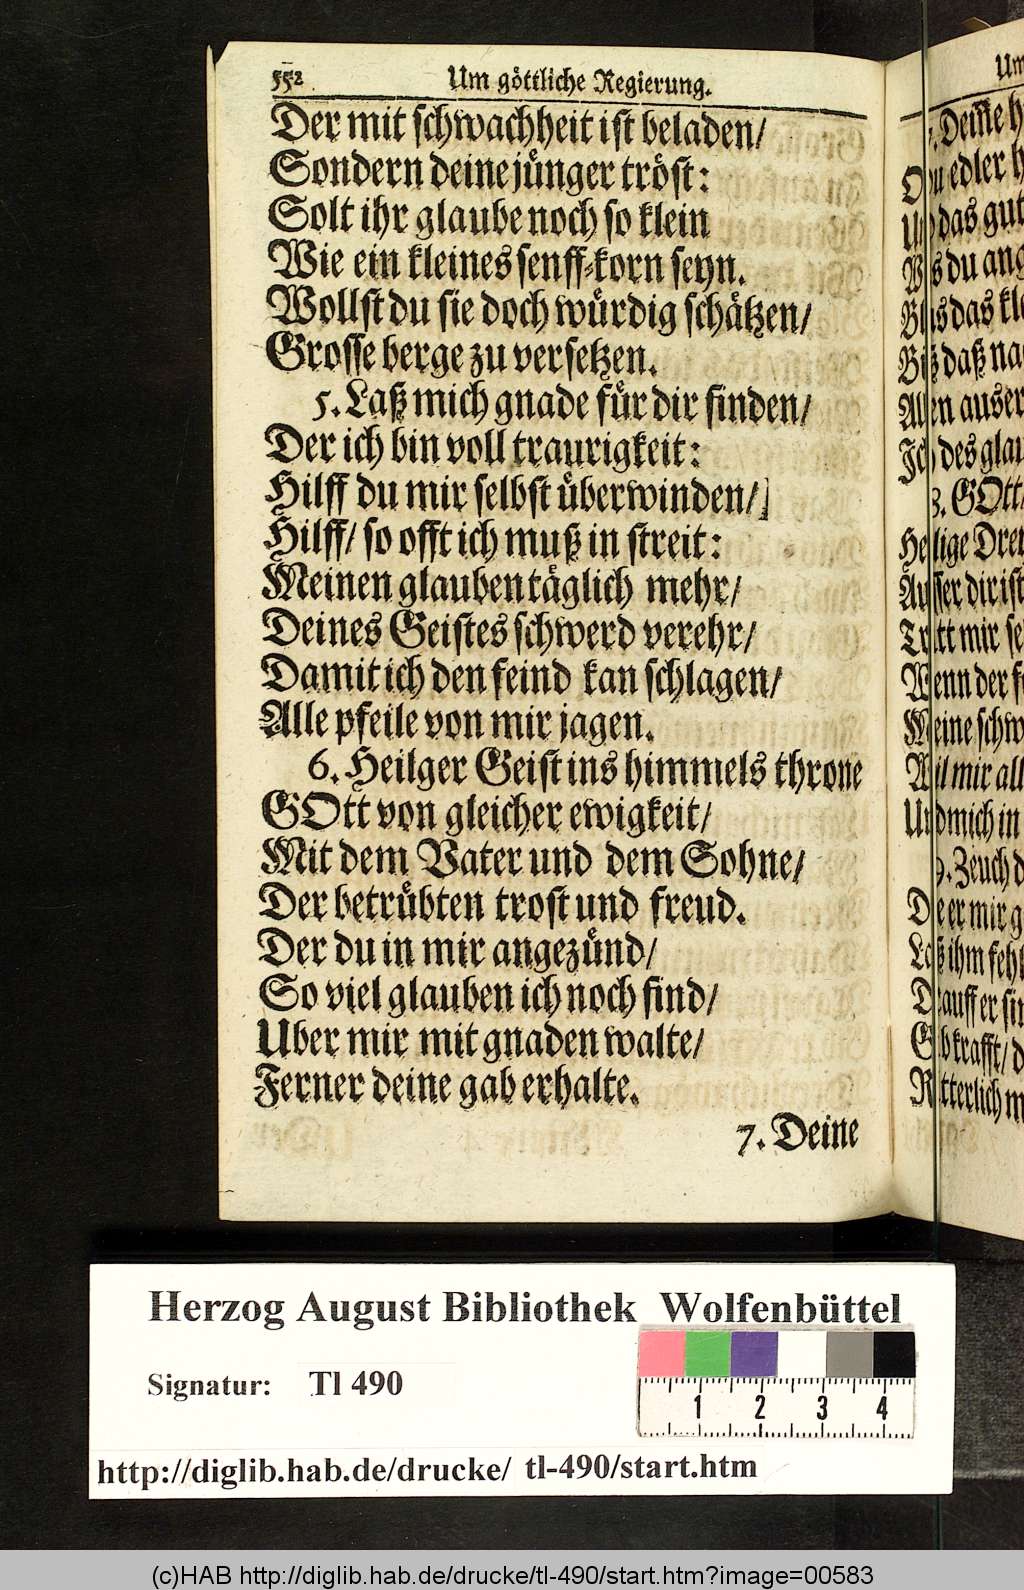 552 Um göttliche Regierung.
Der mit schwachheit ist beladen/
Sondern deine jünger tröst:
Solt ihr glaube noch so klein
Wie ein kleines senff-korn seyn.
Wollst du sie doch würdig schätzen/
Grosse berge zu versetzen.
5. Laß mich gnade für dir finden/
Der ich bin voll traurigkeit:
Hilff du mir selbst überwinden/
Hilff/ so offt ich muß in streit:
Meinen glauben täglich mehr/
Deines Geistes schwerd verehr/
Damit ich den feind kan schlagen/
Alle pfeile von mir jagen.
6. Heilger Geist ins himmels throne
GOtt von gleicher ewigkeit/
Mit dem Vater und dem Sohne/
Der betrübten trost und freud.
Der du in mir angezünd/
So viel glauben ich noch find/
Uber mir mit gnaden walte/
Ferner deine gab erhalte.
7. Deine
Um
7. Deine
edler
das gut
du
das
daß
auser
des
8. GOtt
Heilige
Ausser dir ist
Tritt mir
Wenn der
Meine
Wil mir all
Und mich in
9. Zeuch
Die er mir
Laß ihm
Drauff er
Gib krafft/
Ritterlich
Herzog August Bibliothek Wolfenbüttel
Signatur: Tl 490
1 2 3 4
http://diglib.hab.de/drucke/ tl-490/start.htm
(c)HAB http://diglib.hab.de/drucke/tl-490/start.htm?image=00583